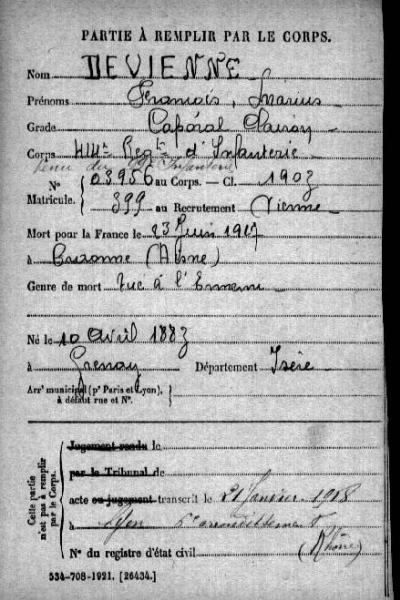 PARTIE À REMPLIR PAR LE CORPS.
Nom DEVIENNE
Prénoms François, Marius
Grade Caporal Clairon
Corps 414e Regt d'Infanterie
venu du d'Infanterie
N° 03956 au Corps. — Cl. 1903
Matricule. 399 au Recrutement Vienne
Mort pour la France le 23 Juin 1917
à Craonne (Aisne)
Genre de mort Tué à l'Ennemi
Né le 10 Avril 1883
à Grenay Département Isère
Arrt municipal (pr Paris et Lyon),
à défaut rue et N°.
Cette partie
n'est pas à remplir
par le Corps.
Jugement rendu le
par le Tribunal de
acte ou jugement transcrit le 21 Janvier 1918
à Lyon 6e arrondissement
(Rhône)
N° du registre d'état civil
534-708-1921. [26434.]